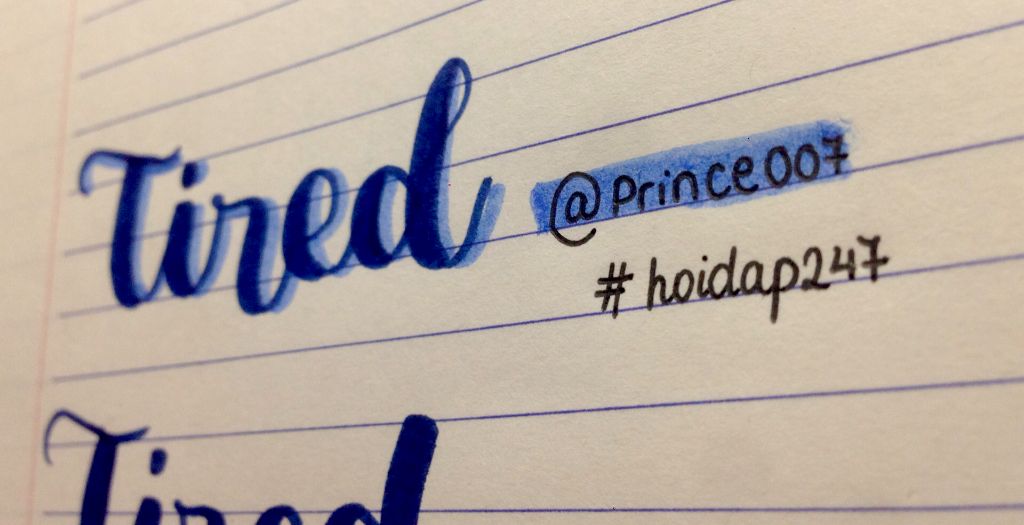 Tired
@Prince007
# hoidap247
Tired